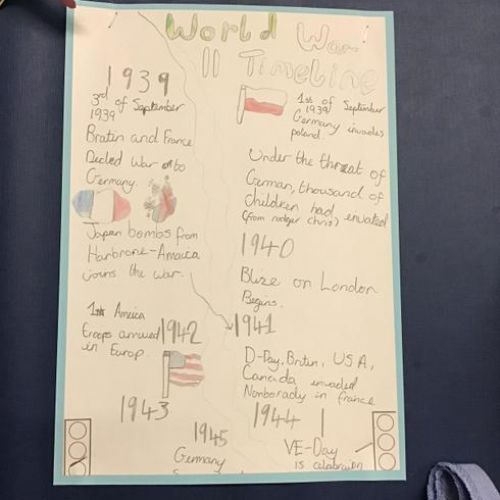 World War
II Timeline
1939
3rd of September
1939
Bratin and France
Decled War to
Germany.
1st of September
1939
Germany invades
poland.
Under the threat of
German, thousand of
children had
1940
Blize on London
Begins.
Japan bombs from
Harbrone-Amaica
joins the war.
1941
1st America
troops arruved
in Europ.
1942
D-Day, Britin, USA,
Canada envaded
in france
1943
1944
1945
Germany
VE-Day
is celebration